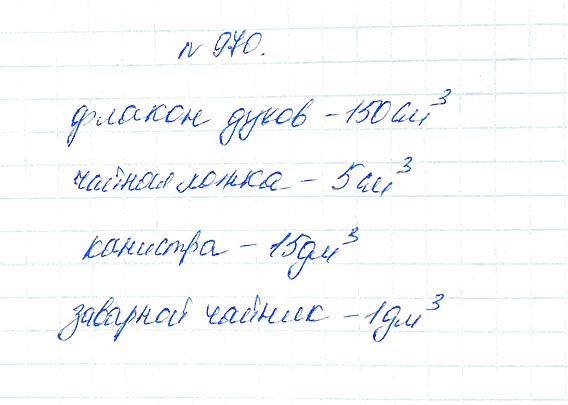 № 970.
флакон духов – 150 см³
чайная ложка – 5 см³
канистра – 15 дм³
заварной чайник – 1 дм³